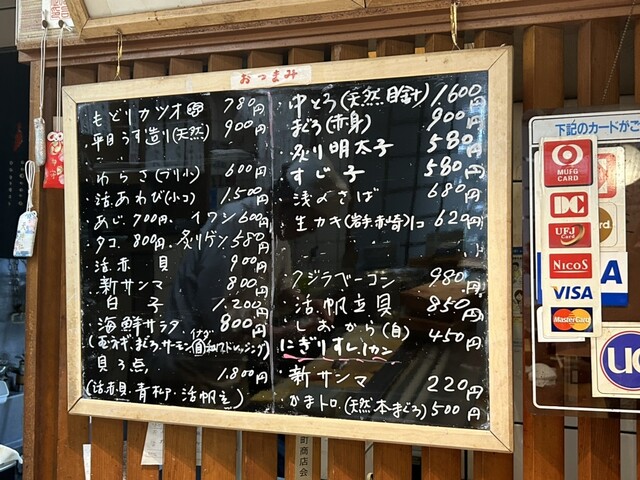 おつまみ
もどりカツオ 780円
平目うす造り(天然) 900円
・わらさ(ブリ小) 600円
・活あわび(小コ) 1,500円
・あじ 700円、イワシ 600円
・タコ 800円、炙りゲソ 580円
・活赤貝 900円
・新サンマ 800円
白子 1,200円
・海鮮サラダ 800円
貝3点 1,800円
(活赤貝・青柳・活帆立)
中とろ(天然 1,600円
まぐろ(赤身) 900円
炙り明太子 580円
すじ子 580円
浅〆さば 680円
生カキ(岩手赤崎)1コ 620円
・クジラベーコン 980円
・活帆立貝 850円
・しおから(自) 450円
にぎりすし1カン
・新サンマ 220円
・かまトロ(天然本まぐろ) 500円
下記のカードがご
MUFG
CARD
DC
UFJ Card
NICOS
VISA
MasterCard
町商店会